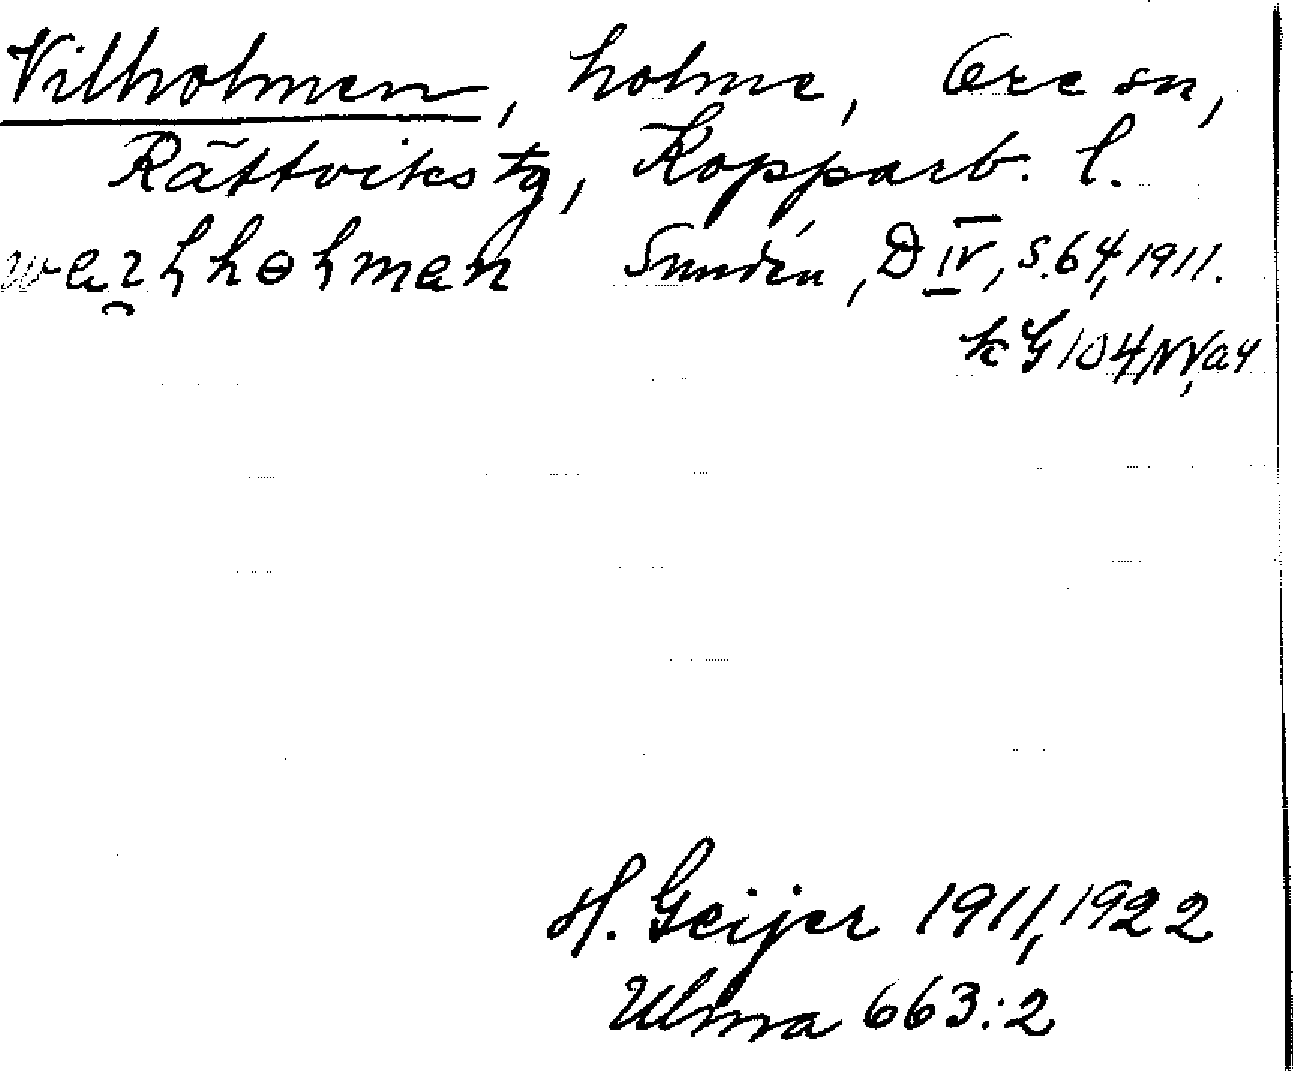 Vilholmen, holme, Ore sn,
Rättviks tg, Kopparb. l.
Sundén, D IV, S. 64, 1911.
104 NV, a 4
H. Geijer 1911, 1922
Ulma 663:2